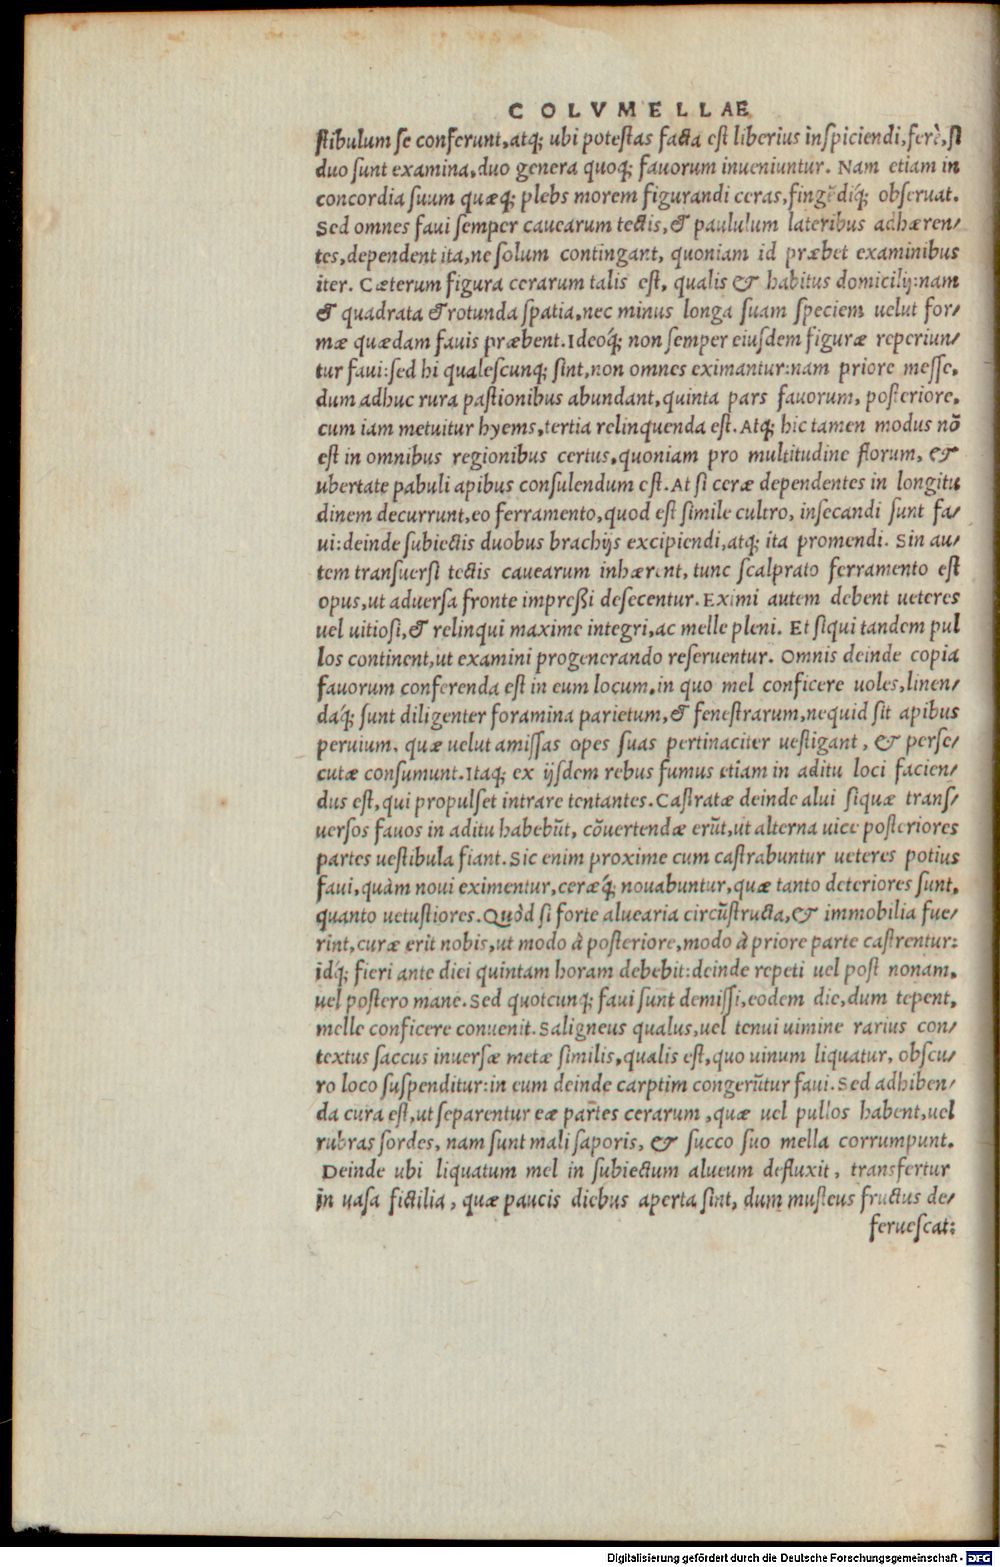 COLVMELLAE
stibulum se conferunt,atq; ubi potestas facta est liberius inspiciendi,ferè,si
duo sunt examina,duo genera quoq; fauorum inueniuntur. Nam etiam in
concordia suum quæq; plebs morem figurandi ceras,fingẽdíq; obseruat.
Sed omnes faui semper cauearum tectis,& paululum lateribus adhæren/
tes,dependent ita,ne solum contingant, quoniam id præbet examinibus
iter. Cæterum figura cerarum talis est, qualis & habitus domicilij:nam
& quadrata & rotunda spatia,nec minus longa suam speciem uelut for/
mæ quædam fauis præbent.Ideoq́; non semper eiusdem figuræ reperiun/
tur faui:sed hi qualescunq; sint,non omnes eximantur:nam priore messe,
dum adhuc rura pastionibus abundant,quinta pars fauorum, posteriore,
cum iam metuitur hyems,tertia relinquenda est.Atq; hic tamen modus nõ
est in omnibus regionibus certus,quoniam pro multitudine florum, &
ubertate pabuli apibus consulendum est.At si ceræ dependentes in longitu
dinem decurrunt,eo ferramento,quod est simile cultro, insecandi sunt fa/
ui:deinde subiectis duobus brachijs excipiendi,atq; ita promendi. Sin au/
tem transuersi tectis cauearum inhærent, tunc scalprato ferramento est
opus,ut aduersa fronte impreßi desecentur.Eximi autem debent ueteres
uel uitiosi,& relinqui maxime integri,ac melle pleni. Et siqui tandem pul
los continent,ut examini progenerando reseruentur. Omnis deinde copia
fauorum conferenda est in eum locum,in quo mel conficere uoles,linen/
daq́; sunt diligenter foramina parietum,& fenestrarum,nequid sit apibus
peruium, quæ uelut amissas opes suas pertinaciter uestigant, & perse/
cutæ consumunt.Itaq; ex ijsdem rebus fumus etiam in aditu loci facien/
dus est,qui propulset intrare tentantes.Castratæ deinde alui siquæ trans/
uersos fauos in aditu habebũt, cõuertendæ erũt,ut alterna uice posteriores
partes uestibula fiant.Sic enim proxime cum castrabuntur ueteres potius
faui,quàm noui eximentur,ceræq́; nouabuntur,quæ tanto deteriores sunt,
quanto uetustiores.Quòd si forte aluearia circũstructa,& immobilia fue/
rint,curæ erit nobis,ut modo à posteriore,modo à priore parte castrentur:
idq́; fieri ante diei quintam horam debebit:deinde repeti uel post nonam,
uel postero mane.Sed quotcunq; faui sunt demissi,eodem die,dum tepent,
melle conficere conuenit.Saligneus qualus,uel tenui uimine rarius con/
textus saccus inuersæ metæ similis,qualis est,quo uinum liquatur, obscu/
ro loco suspenditur:in eum deinde carptim congerũtur faui.Sed adhiben/
da cura est,ut separentur eæ partes cerarum ,quæ uel pullos habent,uel
rubras sordes, nam sunt mali saporis, & succo suo mella corrumpunt.
Deinde ubi liquatum mel in subiectum alueum defluxit, transfertur
in uasa fictilia, quæ paucis diebus aperta sint, dum musteus fructus de/
feruescat:
Digitalisierung gefördert durch die Deutsche Forschungsgemeinschaft - DFG